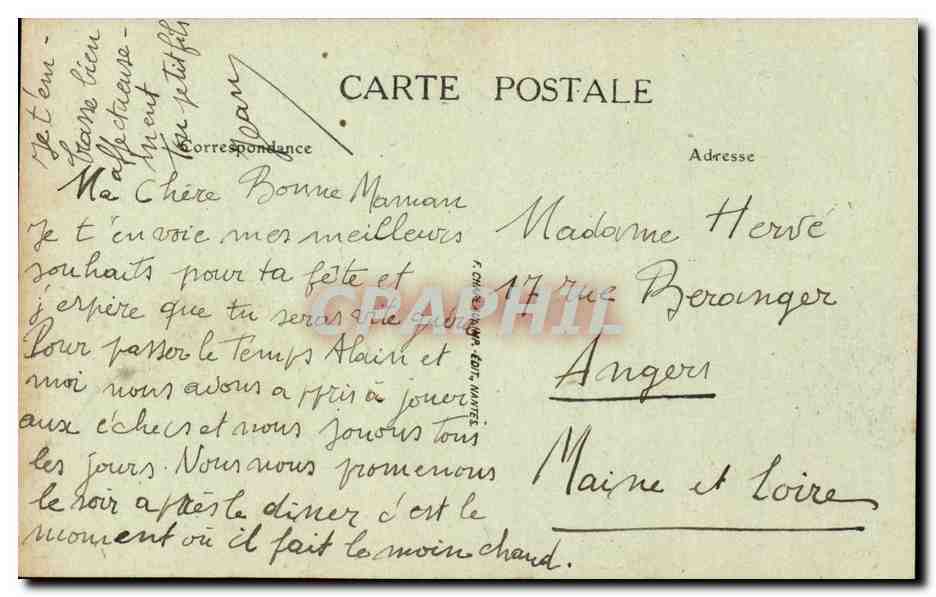 CARTE POSTALE
Correspondance
Adresse
Ma Chère Bonne Maman
Je t'envoie mes meilleurs
souhaits pour ta fête et
j'espère que tu seras vite guéri
Pour passer le temps Alain et
moi nous avons appris à jouer
aux échecs et nous jouons tous
les jours. Nous nous promenons
le soir après le dîner c'est le
moment où il fait le moin chaud.
Je t'em-
brasse bien
affectueuse-
ment
Ton petit fils
Jean
Madame Hervé
17 rue Beranger
Angers
Maine et Loire
F. CHAPEAU, IMP.-ÉDIT., NANTES.
CPAPHIL